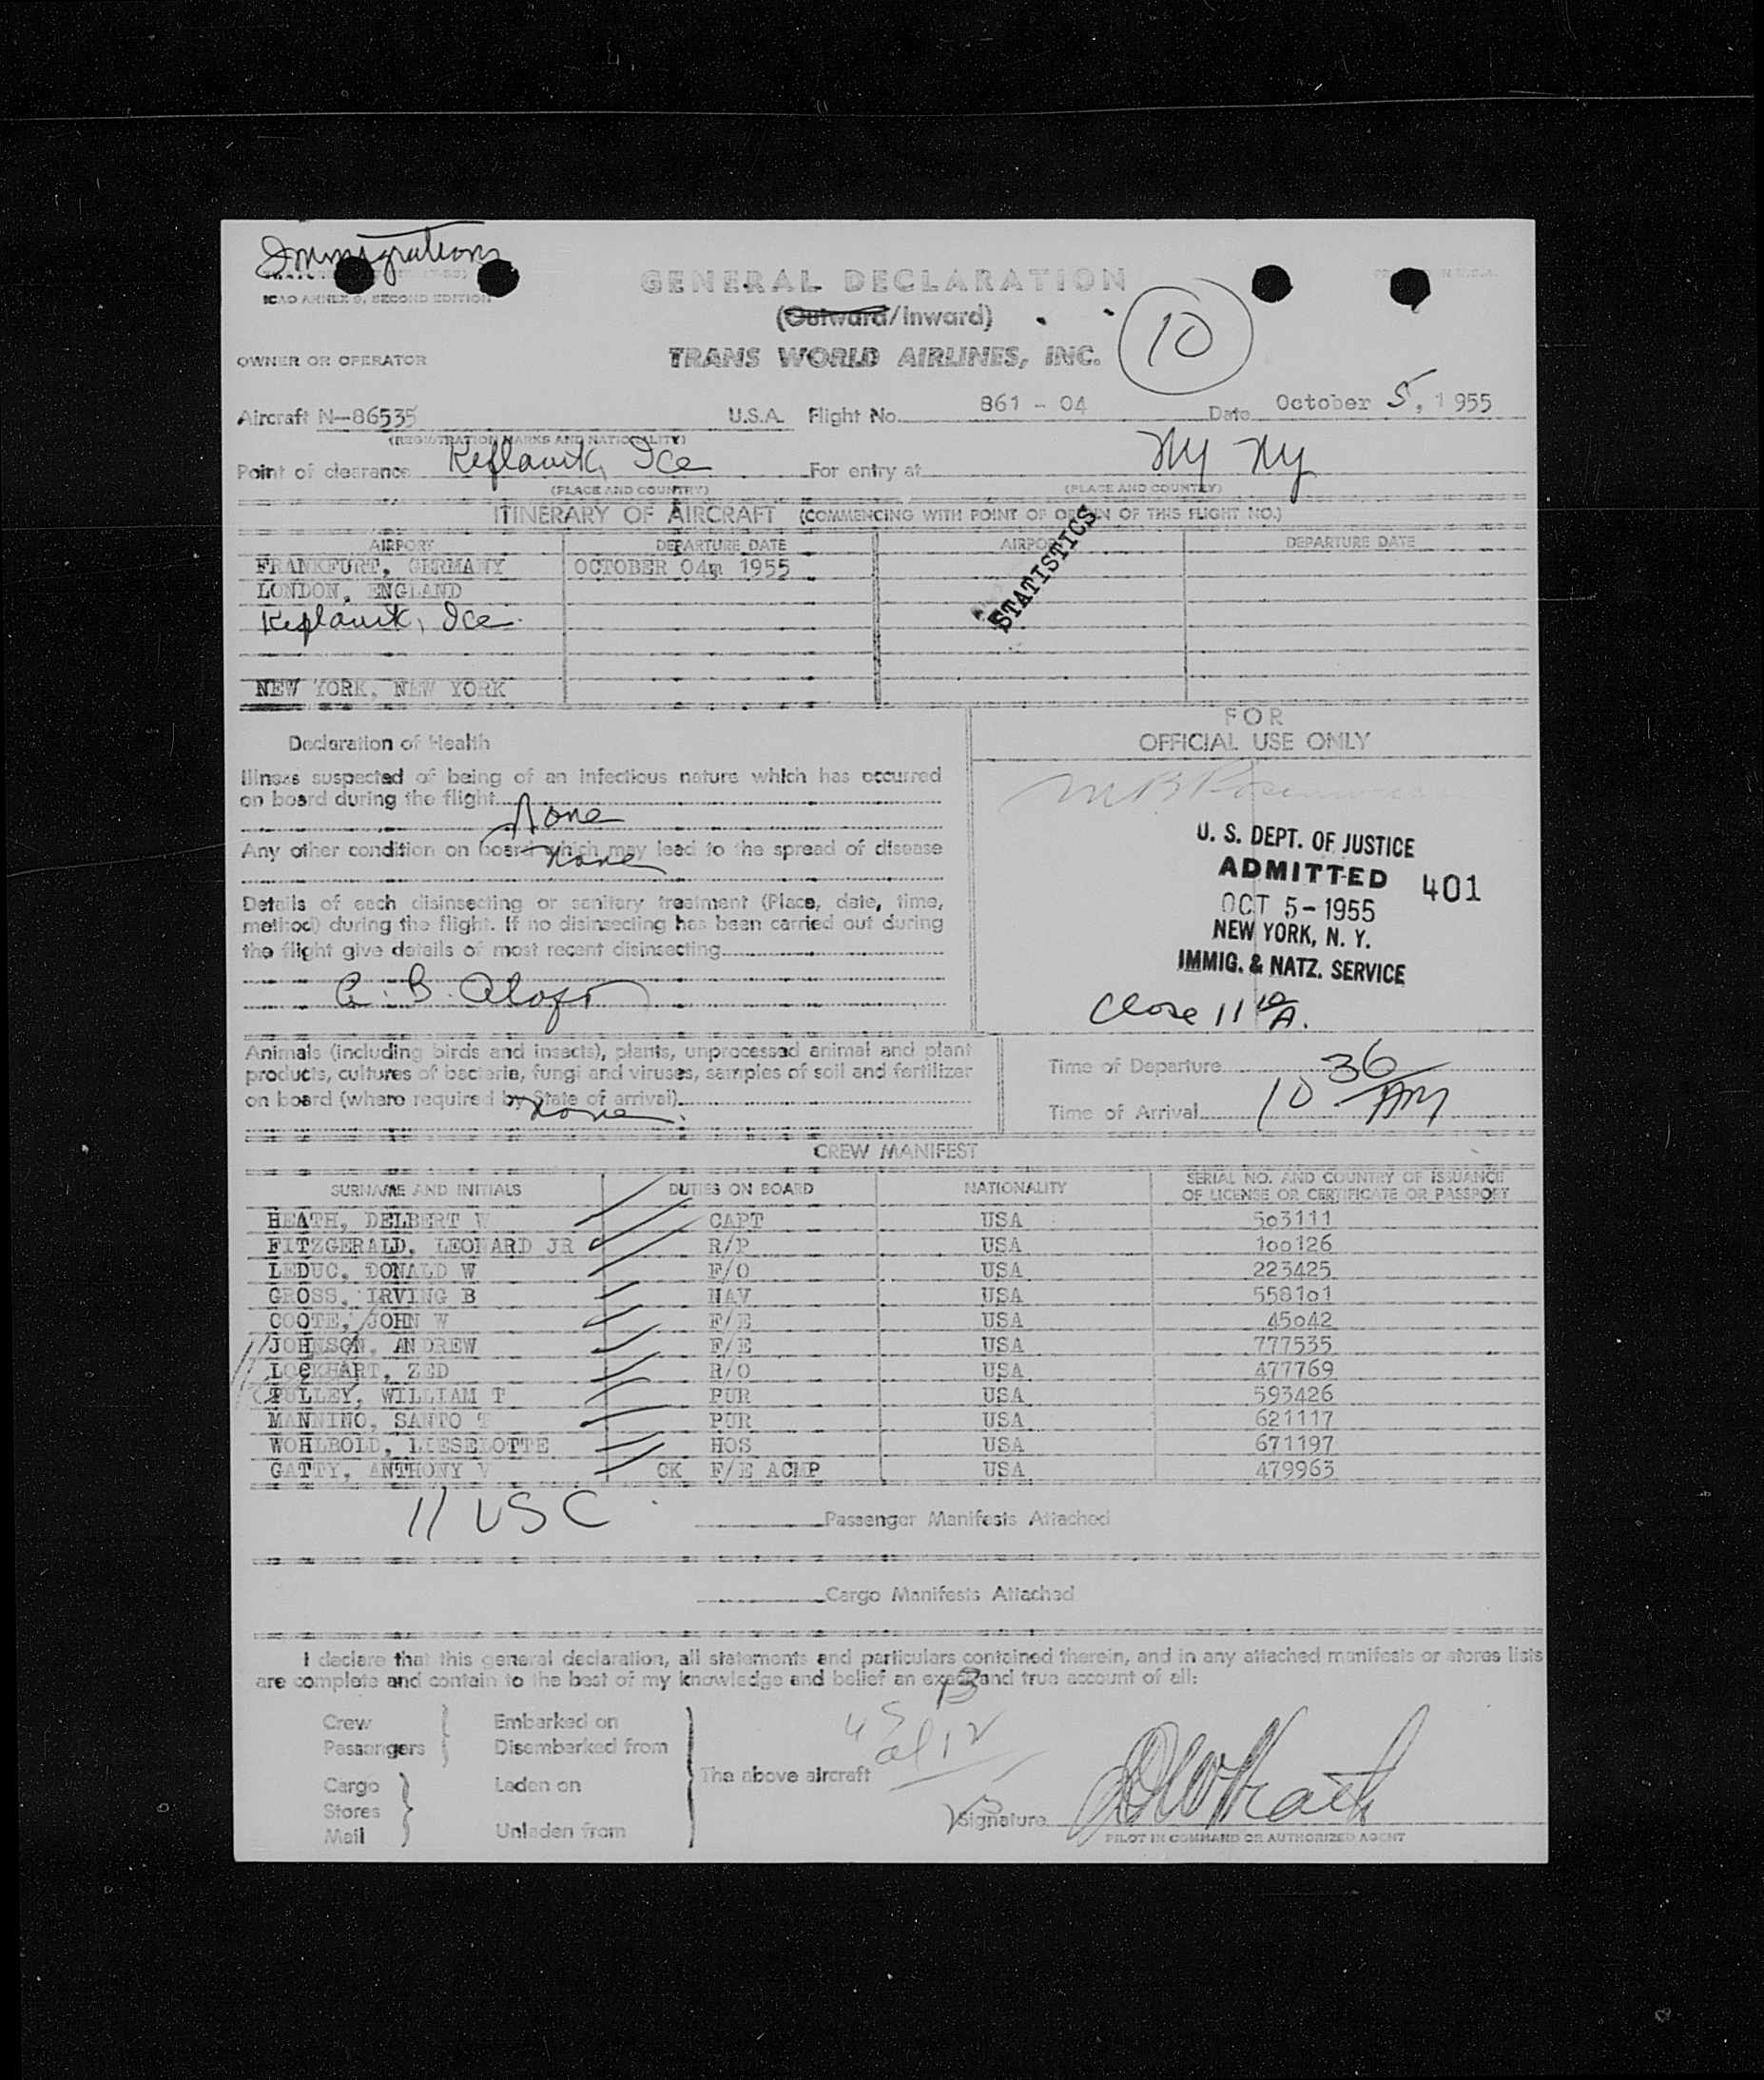 Immigration
ICAO ANNEX 9, SECOND EDITION
GENERAL DECLARATION
(Outward/Inward)
10
OWNER OR OPERATOR TRANS WORLD AIRLINES, INC.
Aircraft N-86535 U.S.A. Flight No. 861 - 04 Date October 5, 1955
(REGISTRATION MARKS AND NATIONALITY)
Point of clearance Keflavik, Ice For entry at NY NY
(PLACE AND COUNTRY) (PLACE AND COUNTRY)
ITINERARY OF AIRCRAFT (COMMENCING WITH POINT OF ORIGIN OF THIS FLIGHT NO.)
AIRPORT DEPARTURE DATE AIRPORT DEPARTURE DATE
FRANKFURT, GERMANY OCTOBER 04m 1955
LONDON, ENGLAND
STATISTICS
Keflavik, Ice.
NEW YORK, NEW YORK
FOR
OFFICIAL USE ONLY
Declaration of Health
Illness suspected of being of an infectious nature which has occurred
on board during the flight
None
Any other condition on board which may lead to the spread of disease
None
Details of each disinsecting or sanitary treatment (Place, date, time,
method) during the flight. If no disinsecting has been carried out during
the flight give details of most recent disinsecting
U. S. DEPT. OF JUSTICE
ADMITTED 401
OCT 5-1955
NEW YORK, N. Y.
IMMIG. & NATZ. SERVICE
Close 11 10/A.
Animals (including birds and insects), plants, unprocessed animal and plant
products, cultures of bacteria, fungi and viruses, samples of soil and fertilizer
on board (where required by State of arrival)
None.
Time of Departure
Time of Arrival 10 36/AM
CREW MANIFEST
SURNAME AND INITIALS DUTIES ON BOARD NATIONALITY SERIAL NO. AND COUNTRY OF ISSUANCE
OF LICENSE OR CERTIFICATE OR PASSPORT
HEATH, DELBERT W CAPT USA 503111
FITZGERALD, LEONARD JR R/P USA 100126
LEDUC, DONALD W F/O USA 223425
GROSS, IRVING B NAV USA 558101
COOTE, JOHN W F/E USA 45042
JOHNSON, ANDREW F/E USA 777535
LOCKHART, ZED R/O USA 477769
TULLEY, WILLIAM T PUR USA 593426
MANNINO, SANTO T PUR USA 621117
WOHLBOLD, LIESELOTTE HOS USA 671197
GATTY, ANTHONY V CK F/E ACMP USA 479963
11 USC
Passenger Manifests Attached
Cargo Manifests Attached
I declare that this general declaration, all statements and particulars contained therein, and in any attached manifests or stores lists
are complete and contain to the best of my knowledge and belief an exact and true account of all:
Crew Embarked on
Passengers Disembarked from
The above aircraft
Cargo Laden on
Stores
Mail Unladen from
Signature
PILOT IN COMMAND OR AUTHORIZED AGENT